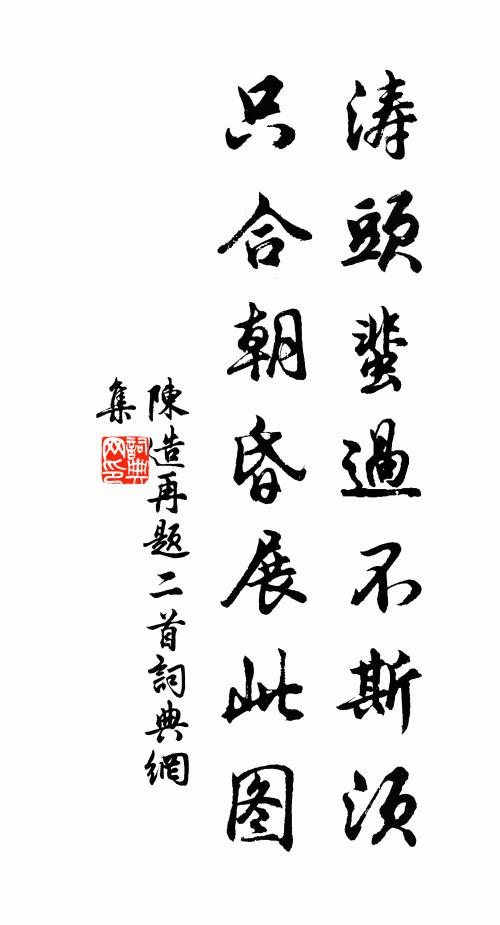 涛頭蜚過不斯須
只合朝昏展此图
陳造再題二首詞典網
集
詞典网印